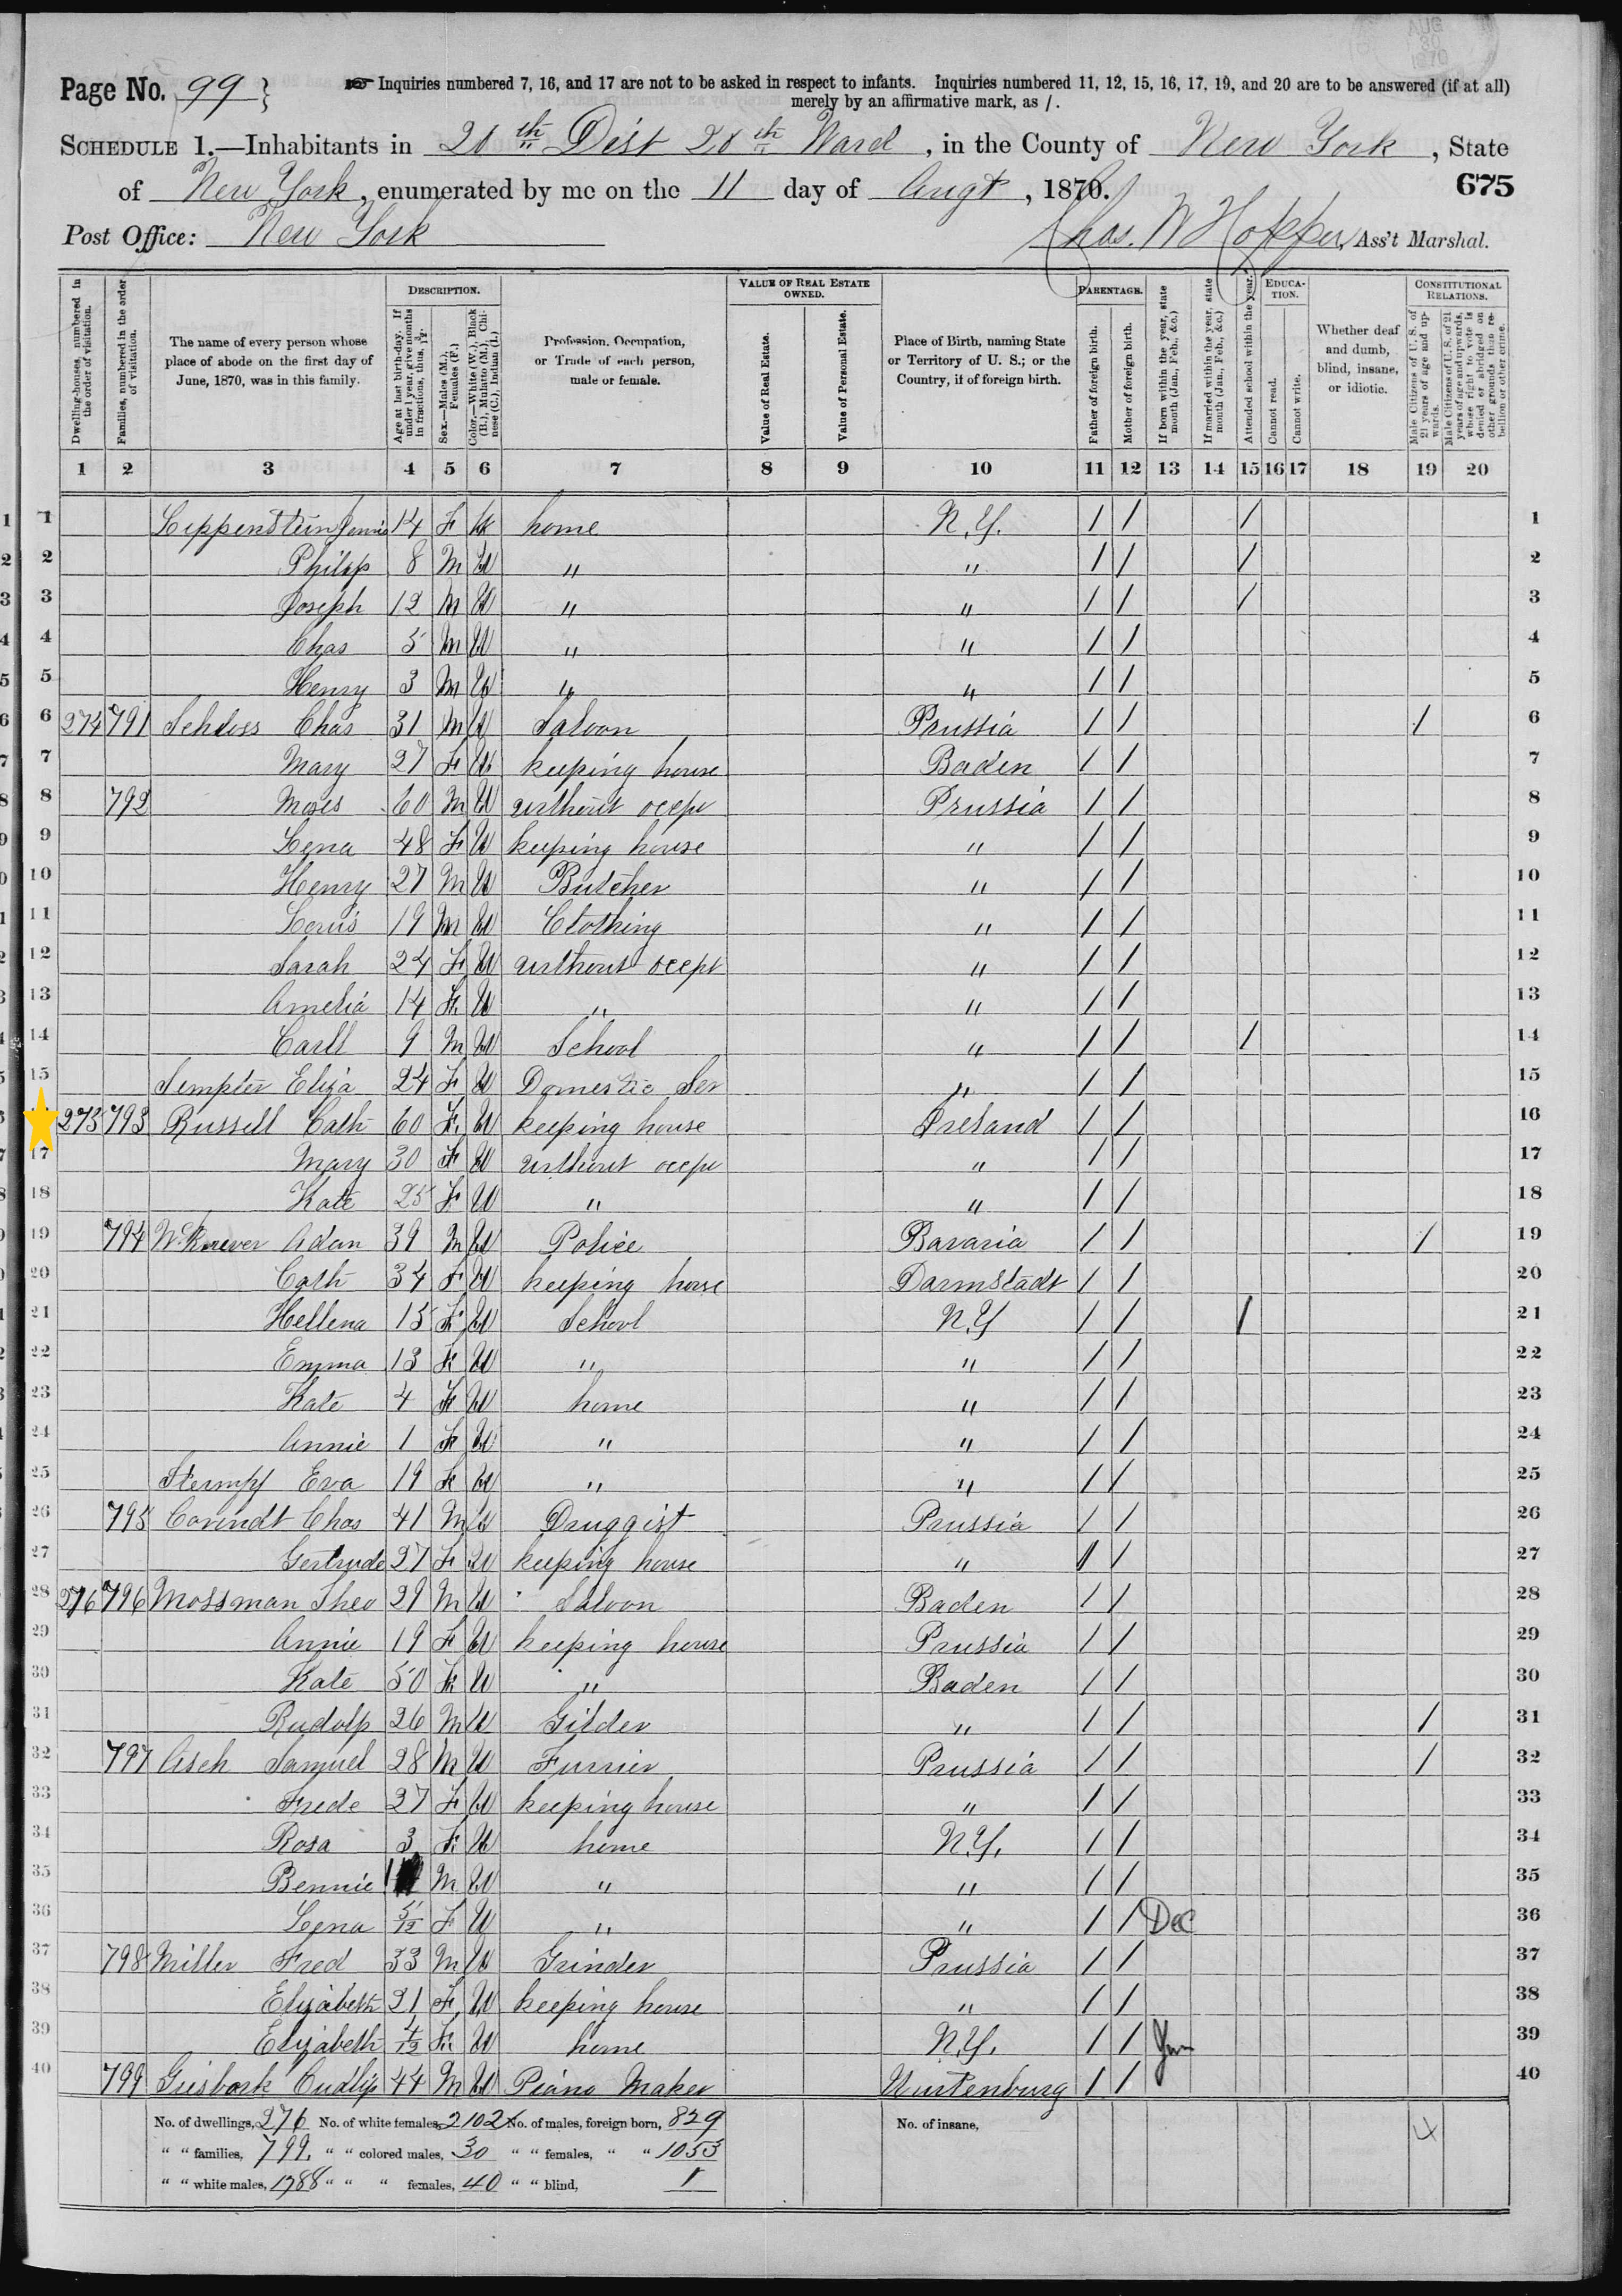 AUG 30 1870
Page No. 99 } ☞ Inquiries numbered 7, 16, and 17 are not to be asked in respect to infants. Inquiries numbered 11, 12, 15, 16, 17, 19, and 20 are to be answered (if at all)
merely by an affirmative mark, as /.
SCHEDULE 1.—Inhabitants in 20th Dist 20th Ward, in the County of New York, State
of New York, enumerated by me on the 11 day of Augt, 1870. 675
Post Office: New York Chas. W Hopper, Ass't Marshal.
Dwelling-houses, numbered in the order of visitation.
Families, numbered in the order of visitation.
The name of every person whose place of abode on the first day of June, 1870, was in this family.
DESCRIPTION.
Age at last birth-day. If under 1 year, give months in fractions, thus, 3/12.
Sex.—Males (M.), Females (F.)
Color.—White (W.), Black (B.), Mulatto (M.), Chinese (C.), Indian (I.)
Profession, Occupation, or Trade of each person, male or female.
VALUE OF REAL ESTATE OWNED.
Value of Real Estate.
Value of Personal Estate.
Place of Birth, naming State or Territory of U. S.; or the Country, if of foreign birth.
PARENTAGE.
Father of foreign birth.
Mother of foreign birth.
If born within the year, state month (Jan., Feb., &c.)
If married within the year, state month (Jan., Feb., &c.)
Attended school within the year.
EDUCATION.
Cannot read.
Cannot write.
Whether deaf and dumb, blind, insane, or idiotic.
CONSTITUTIONAL RELATIONS.
Male Citizens of U. S. of 21 years of age and upwards.
Male Citizens of U. S. of 21 years of age and upwards, whose right to vote is denied or abridged on other grounds than rebellion or other crime.
1 2 3 4 5 6 7 8 9 10 11 12 13 14 15 16 17 18 19 20
1 Lippenstein Jennie 14 F W home N.Y. / / / 1
2 Philip 8 M W " " / / / 2
3 Joseph 12 M W " " / / / 3
4 Chas 5 M W " " / / 4
5 Henry 3 M W " " / / 5
6 274 791 Schloss Chas 31 M W Saloon Prussia / / / 6
7 Mary 27 F W keeping house Baden / / 7
8 792 Moses 60 M W without occpu Prussia / / 8
9 Lena 48 F W keeping house " / / 9
10 Henry 27 M W Butcher " / / 10
11 Louis 19 M W Clothing " / / 11
12 Sarah 24 F W without occpt " / / 12
13 Amelia 14 F W " " / / 13
14 Carll 9 M W School " / / / 14
15 Sempter Eliza 24 F W Domestic Ser " / / 15
275 793 Russell Cath 60 F W keeping house Ireland / / 16
17 Mary 30 F W without occpu " / / 17
18 Kate 25 F W " " / / 18
19 794 Adam 39 M W Police Bavaria / / / 19
20 Cath 34 F W keeping house Darmstadt / / 20
21 Hellena 15 F W School N.Y / / / 21
22 Emma 13 F W " " / / 22
23 Kate 4 F W home " / / 23
24 Annie 1 F W " " / / 24
25 Stempf Eva 19 F W " " / / 25
26 795 Corendt Chas 41 M W Druggist Prussia / / 26
27 Gertrude 27 F W keeping house " / / 27
28 276 796 Mossman Theo 29 M W Saloon Baden / / 28
29 Annie 19 F W keeping house Prussia / / 29
30 Kate 50 F W " Baden / / 30
31 Rudolp 26 M W Gilder " / / / 31
32 797 Asch Samuel 28 M W Furrier Prussia / / / 32
33 Frede 27 F W keeping house " / / 33
34 Rosa 3 F W home N.Y. / / 34
35 Bennie 1 M W " " / / 35
36 Lena 5/12 F W " " / / Dec 36
37 798 Miller Fred 33 M W Grinder Prussia / / 37
38 Elizabeth 21 F W keeping house " / / 38
39 Elizabeth 4/12 F W home N.Y. / / Jan 39
40 799 Gusbork 44 M W Piano Maker Wurtenburg / / 40
No. of dwellings, 276 No. of white females, 2102 No. of males, foreign born, 829 No. of insane, 4
" " families, 799. " " colored males, 30 " " females, " " 1053
" " white males, 1788 " " " females, 40 " " blind, 1